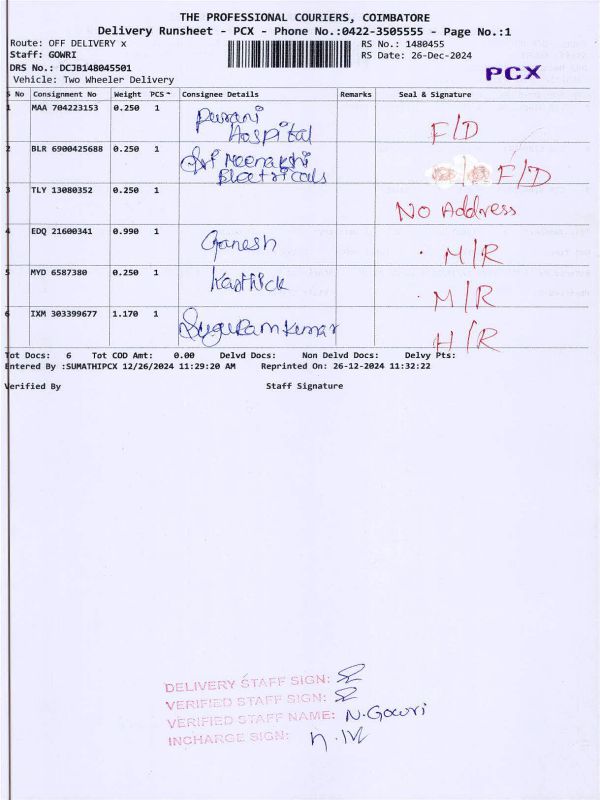 THE PROFESSIONAL COURIERS, COIMBATORE
Delivery Runsheet - PCX - Phone No.:0422-3505555 - Page No.:1
Route: OFF DELIVERY x RS No.: 1480455
Staff: GOWRI RS Date: 26-Dec-2024
DRS No.: DCJB148045501
Vehicle: Two Wheeler Delivery PCX
S No Consignment No Weight PCS Consignee Details Remarks Seal & Signature
1 MAA 704223153 0.250 1 Purani
Hospital F/D
2 BLR 6900425688 0.250 1 Sri Meenakshi
Electricals F/D
3 TLY 13080352 0.250 1 No Address
4 EDQ 21600341 0.990 1 Ganesh M/R
5 MYD 6587380 0.250 1 Karthick M/R
6 IXM 303399677 1.170 1 Suguramkumar H/R
Tot Docs: 6 Tot COD Amt: 0.00 Delvd Docs: Non Delvd Docs: Delvy Pts:
Entered By :SUMATHIPCX 12/26/2024 11:29:20 AM Reprinted On: 26-12-2024 11:32:22
Verified By Staff Signature
DELIVERY STAFF SIGN:
VERIFIED STAFF SIGN:
VERIFIED STAFF NAME: N.Gowri
INCHARGE SIGN: